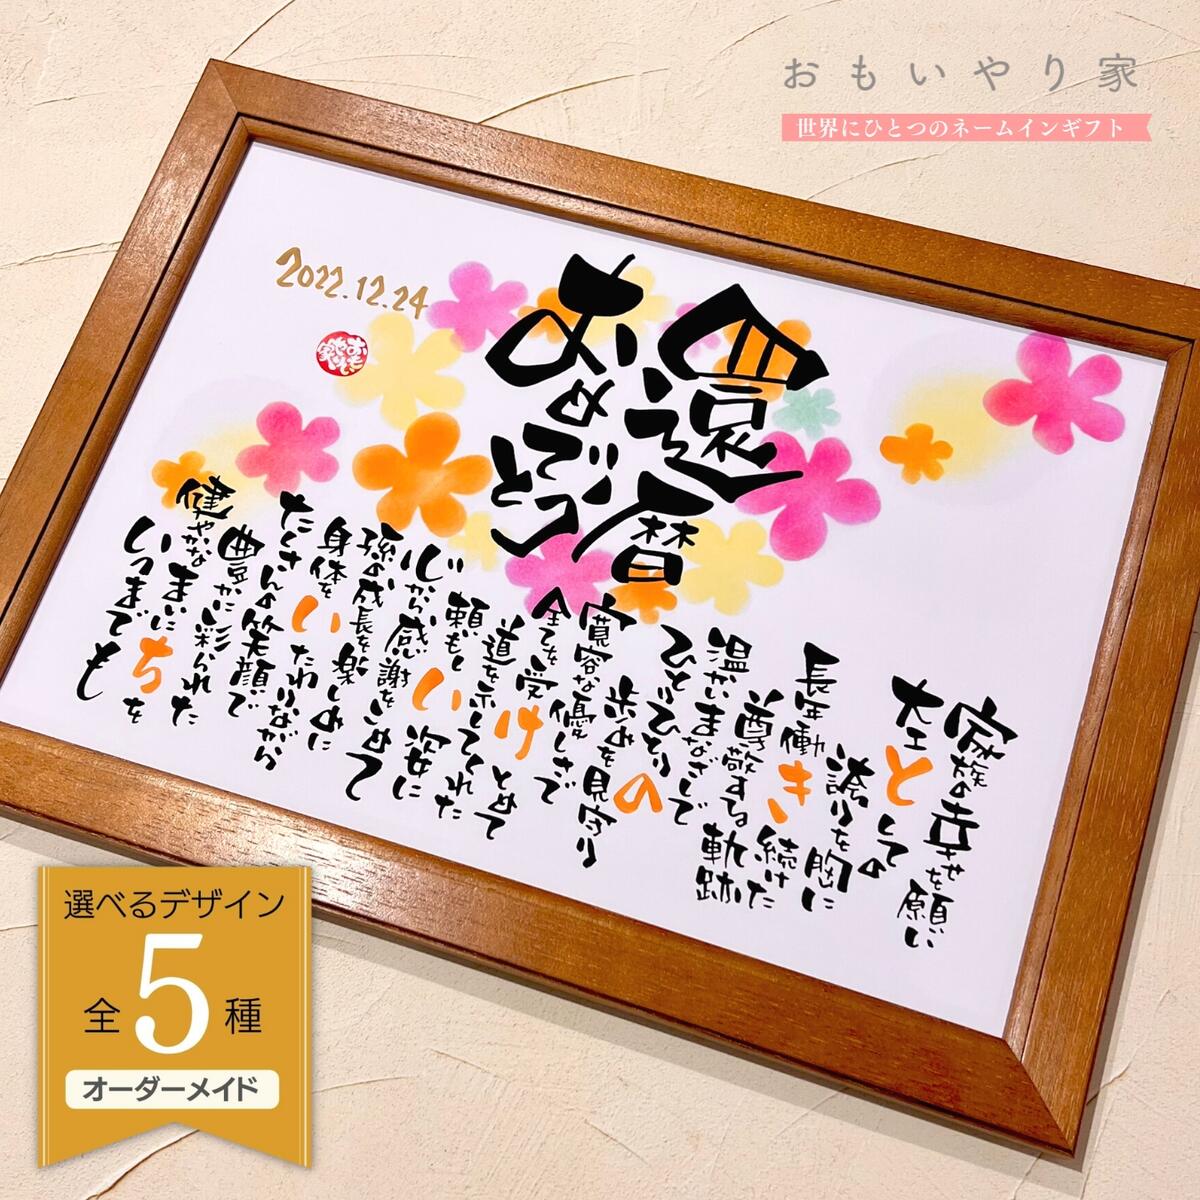 おもいやり家
世界にひとつのネームインギフト
還暦
おめでとう
2022.12.24
おもいやり家
家族の幸せを願い
大ことしての
誇りを胸に
長年働き続けた
尊敬する軌跡
温かいまなざしで
ひとりひとりの
歩めを見守り
寛容な優しさで
全てを受けとめて
道を示してくれた
頼もしい姿に
心から感謝をこめて
孫の成長を楽しめに
身体をいたわりながら
たくさんの笑顔で
豊かに彩られた
健やかなまいにちを
いつまでも
選べるデザイン
全5種
オーダーメイド